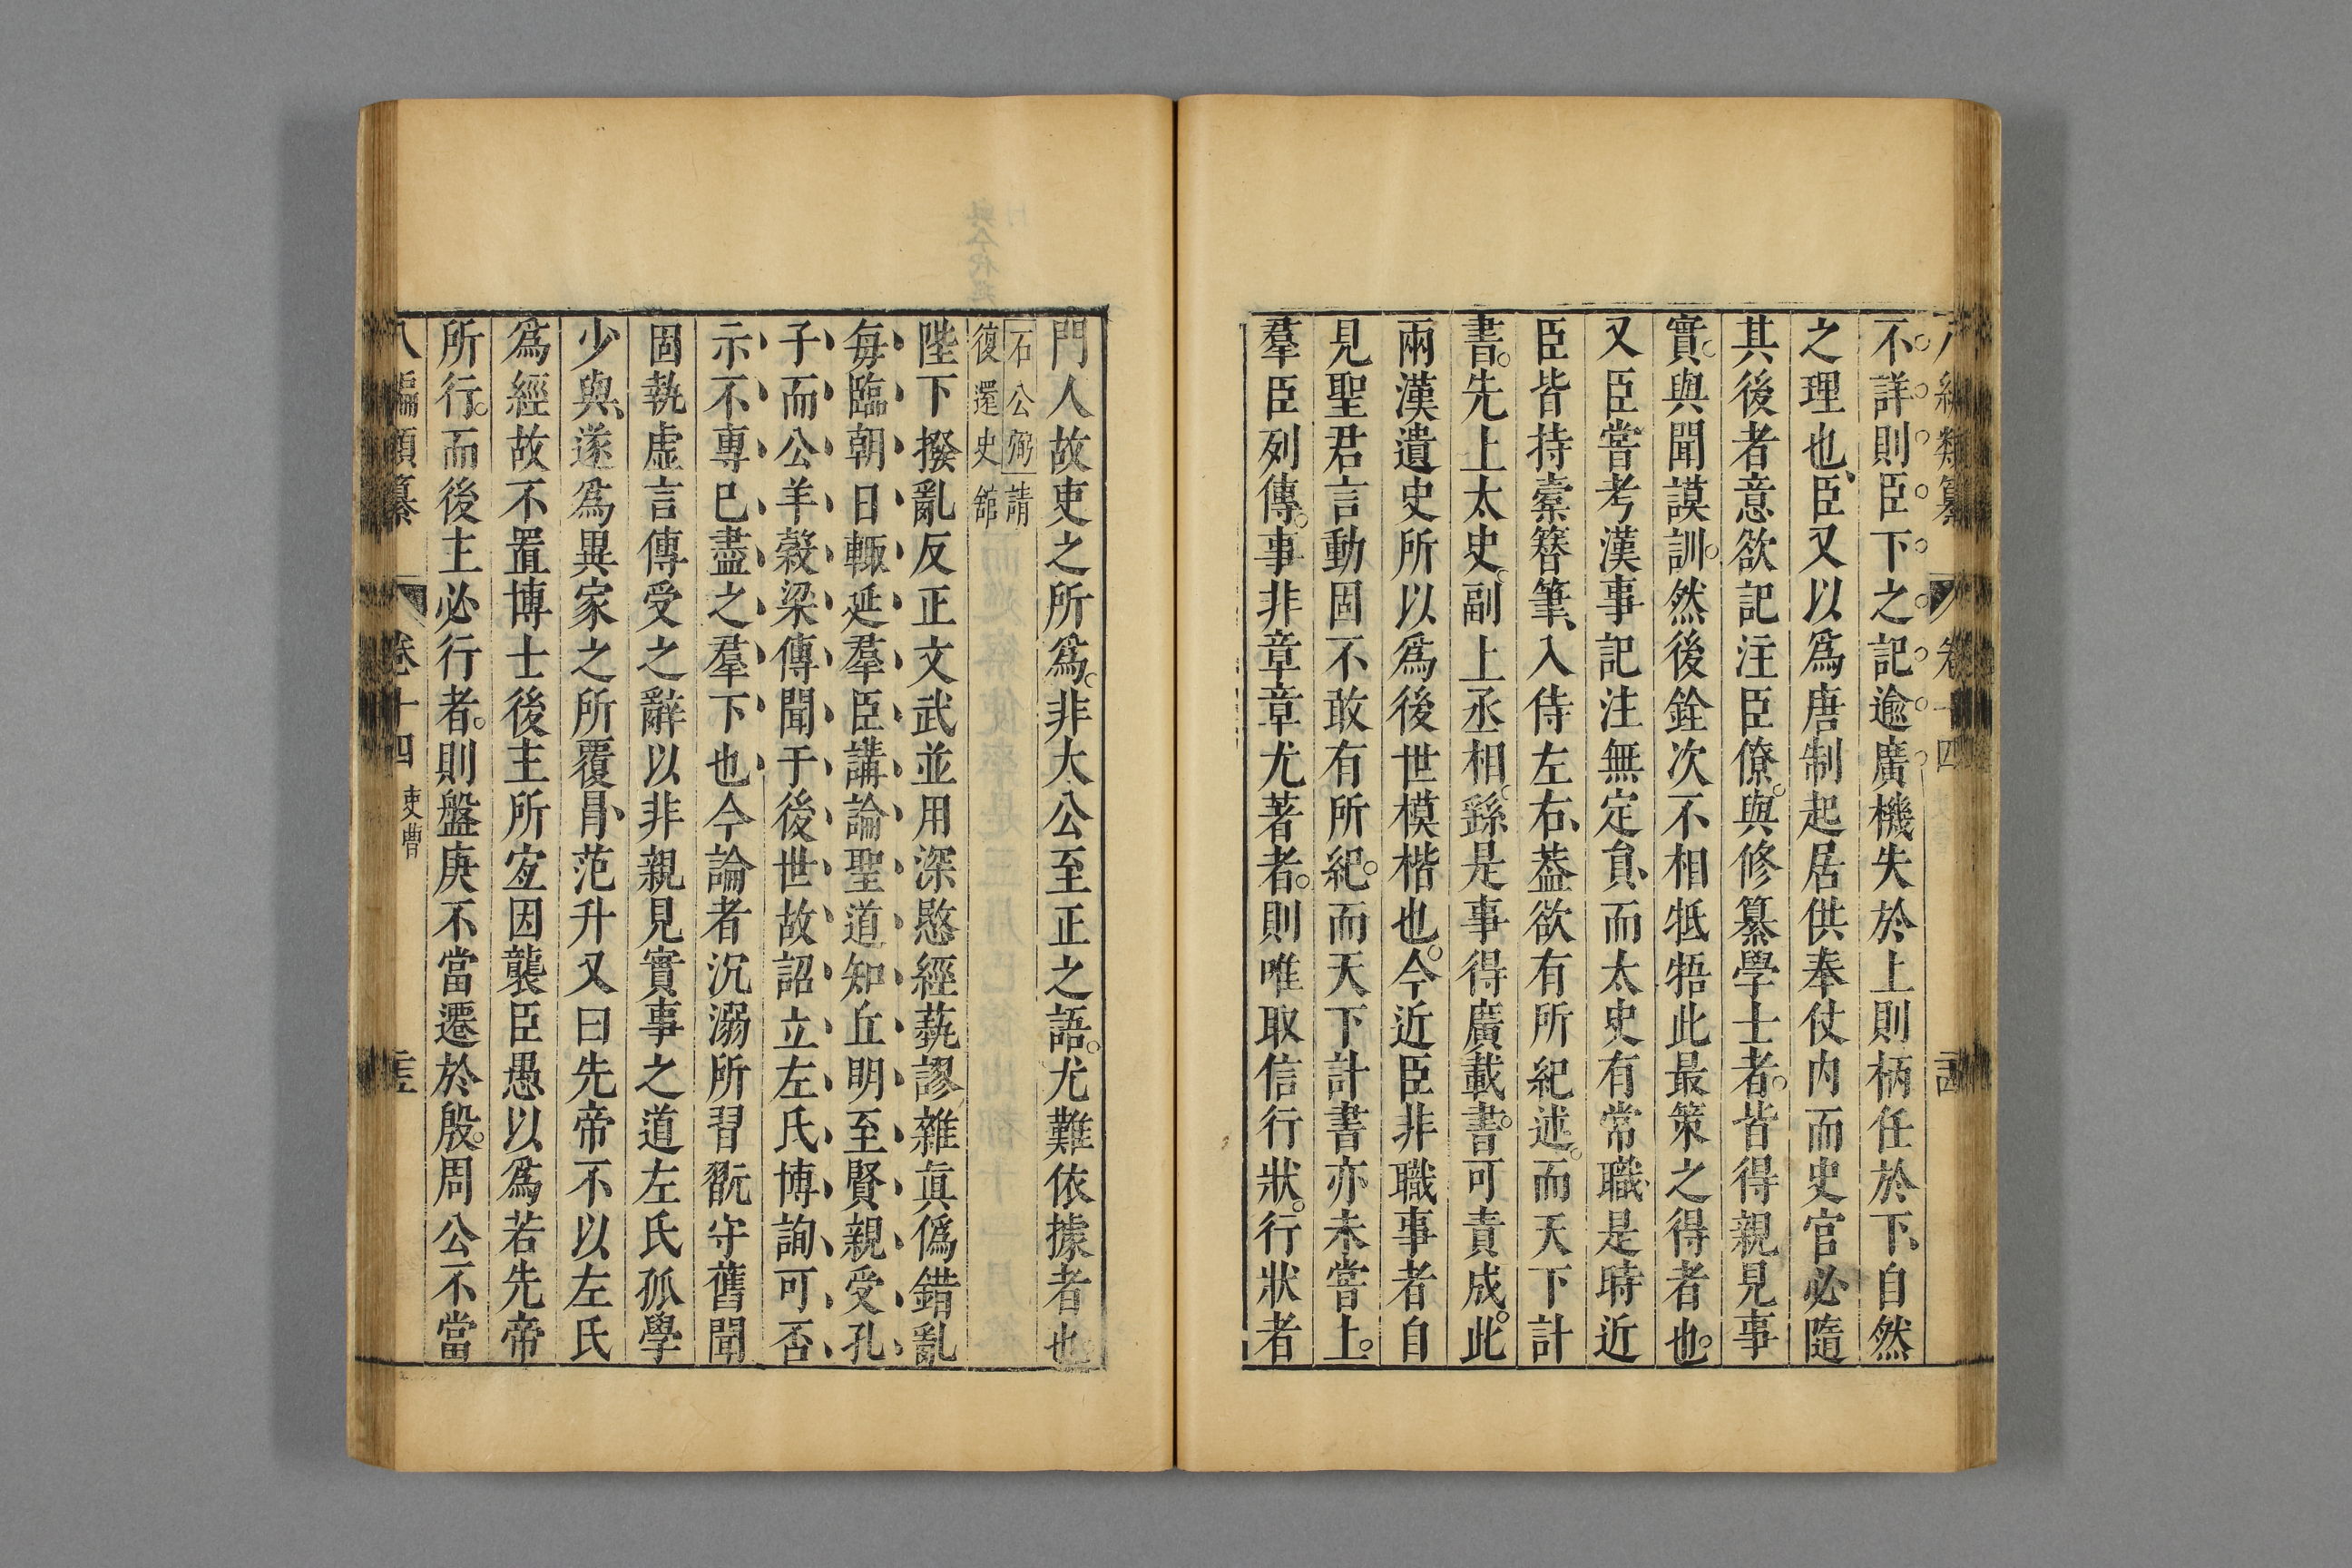 八編類纂 卷十四
不詳則臣下之記逾廣機失於上則柄任於下自然
之理也臣又以爲唐制起居供奉仗内而史官必隨
其後者意欲記注臣僚與修纂學士者皆得親見事
實與聞謨訓然後銓次不相牴牾此最策之得者也
又臣嘗考漢事記注無定員而太史有常職是時近
臣皆持橐簪筆入侍左右葢欲有所紀述而天下計
書先上太史副上丞相繇是事得廣載書可責成此
兩漢遺史所以爲後世模楷也今近臣非職事者自
見聖君言動固不敢有所紀而天下計書亦未嘗上
羣臣列傳事非章章尤著者則唯取信行狀行狀者
門人故吏之所爲非大公至正之語尤難依據者也
石公弼請
復還史舘
陛下撥亂反正文武並用深愍經蓺謬雜眞僞錯亂
每臨朝日輙延羣臣講論聖道知丘明至賢親受孔
子而公羊穀梁傳聞于後世故詔立左氏博詢可否
示不專已盡之羣下也今論者沉溺所習翫守舊聞
固執虛言傳受之辭以非親見實事之道左氏孤學
少與遂爲異家之所覆冐范升又曰先帝不以左氏
爲經故不置博士後主所宐因襲臣愚以爲若先帝
所行而後主必行者則盤庚不當遷於殷周公不當
八編類纂 卷十四 吏曹